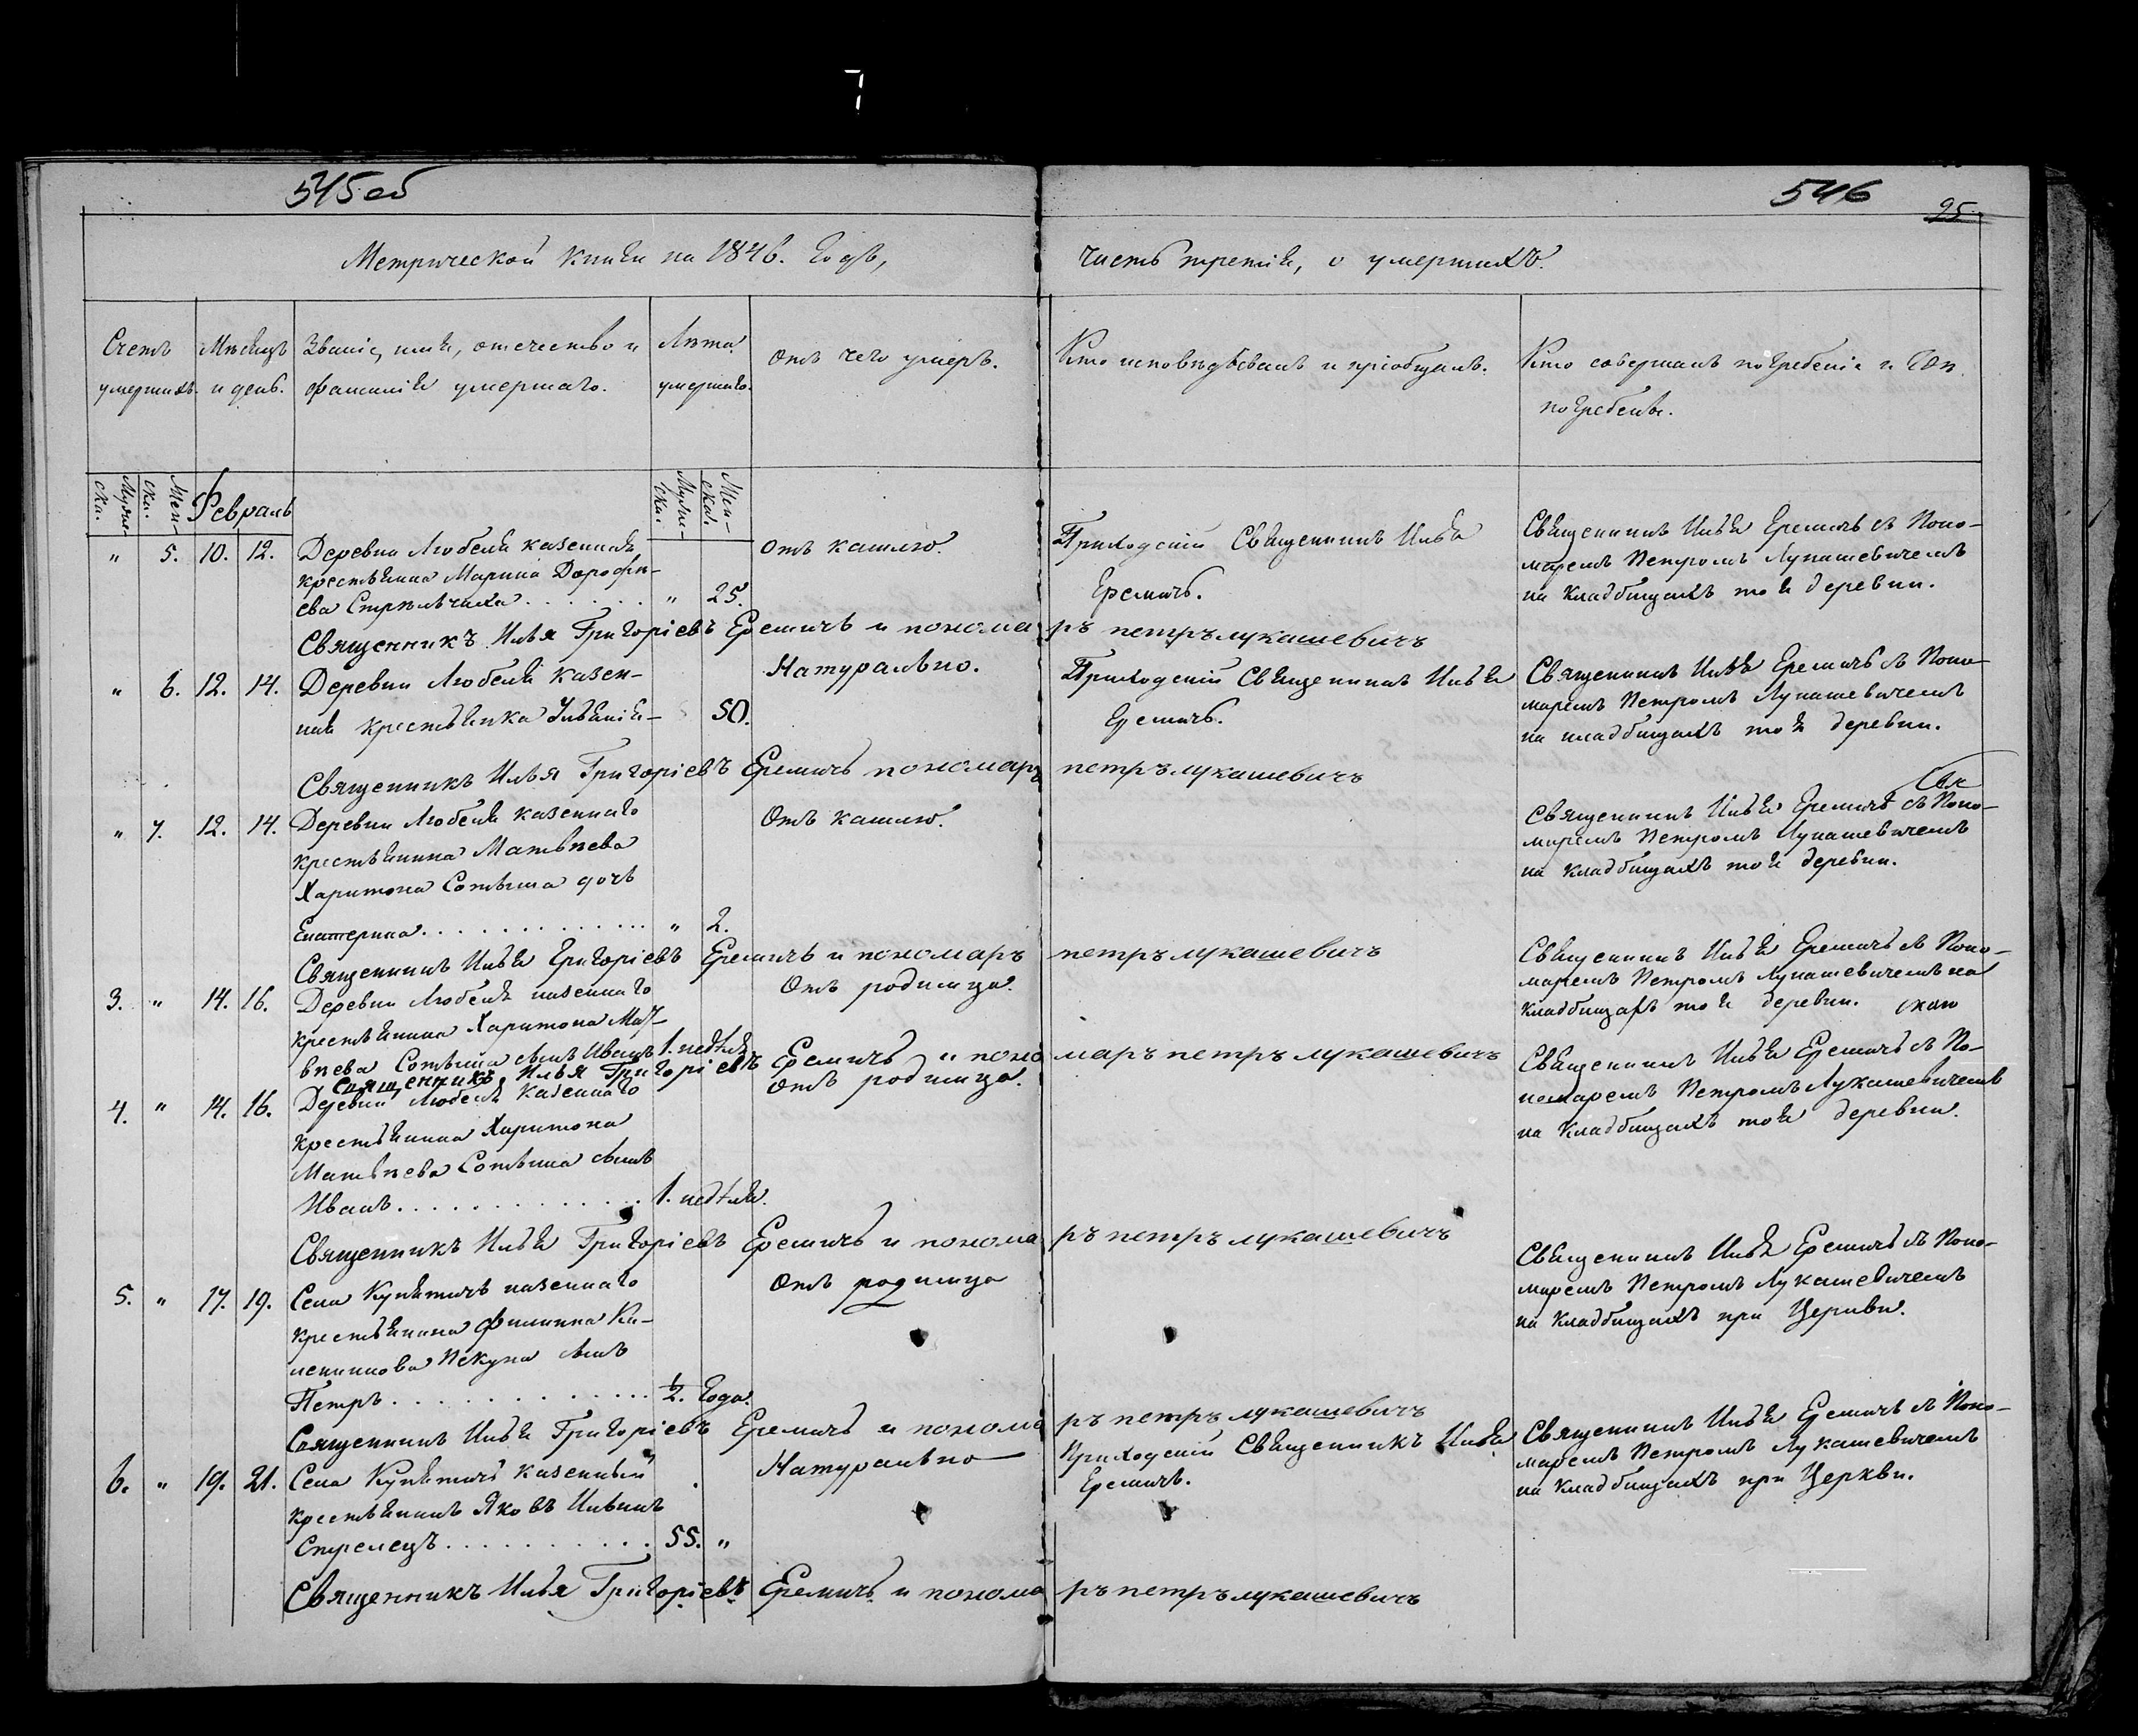 545 об
546
95
Метрической книги на 1846. Годъ,
часть третія, о умершихъ.
Счетъ
умершихъ.
Мѣсяцъ
и день.
Званіе, имя, отечество и
фамилія умершаго.
Лѣта
умершаго.
Отъ чего умеръ.
Кто исповѣдывалъ и пріобщалъ.
Кто совершалъ погребеніе и гдѣ
погребены.
Муже-
ска.
Жен-
ска.
Февраль
Муже-
ска.
Жен-
ска.
„ 5. 10. 12.
Деревни Любеля казенная
крестьянка Марина Дорофѣ-
ева Стрѣльчиха . . . . . . . „ 25.
Отъ кашлю.
Приходскій Священникъ Илья
Еремичъ.
Священникъ Илья Еремичъ съ Поно-
маремъ Петромъ Лукашевичемъ
на кладбищахъ тоя деревни.
Священникъ Илья Григоріевъ Еремичъ и пономаръ петръ лукашевичъ
„ 6. 12. 14.
Деревни Любеля казен-
ная крестьянка Ульянія — 50.
Натурально.
Приходскій Священникъ Илья
Еремичъ.
Священникъ Илья Еремичъ съ Поно-
маремъ Петромъ Лукашевичемъ
на кладбищахъ тоя деревни.
Священникъ Илья Григоріевъ Еремичъ пономаръ петръ лукашевичъ
„ 7. 12. 14.
Деревни Любеля казеннаго
крестьянина Матвѣева
Харитона дочь
Екатерина . . . . . . . . . . . . . „ 2.
Отъ кашлю.
Священникъ Илья Еремичъ съ Поно-
маремъ Петромъ Лукашевичемъ
на кладбищахъ тоя деревни.
Священникъ Илья Григоріевъ Еремичъ и пономаръ петръ лукашевичъ
3. „ 14. 16.
Деревни Любеля казеннаго
крестьянина Харитона Мат-
вѣева сынъ Иванъ 1. недѣля
Отъ родимца.
Священникъ Илья Еремичъ съ Поно-
маремъ Петромъ Лукашевичемъ на
кладбищахъ тоя деревни.
Священникъ Илья Григоріевъ Еремичъ и пономаръ петръ лукашевичъ
4. „ 14. 16.
Деревни Любеля казеннаго
крестьянина Харитона
Матвѣева сынъ
Иванъ . . . . . . . . . . . . . 1. недѣля.
Отъ родимца.
Священникъ Илья Еремичъ съ По-
номаремъ Петромъ Лукашевичемъ
на кладбищахъ тоя деревни.
Священникъ Илья Григоріевъ Еремичъ и пономаръ петръ лукашевичъ
5. „ 17. 19.
Села Купятичъ казеннаго
крестьянина Филиппа Ка-
Пекуна сынъ
Петръ . . . . . . . . . . . . . ½. года.
Отъ родимца
Священникъ Илья Еремичъ съ Поно-
маремъ Петромъ Лукашевичемъ
на кладбищахъ при Церкви.
Священникъ Илья Григоріевъ Еремичъ и пономаръ петръ лукашевичъ
6. „ 19. 21.
Села Купятичъ казенный
крестьянинъ Яковъ Ильинъ
Стрелецъ . . . . . . . . . . . 55. „
Натурально
Приходскій Священникъ Илья
Еремичъ.
Священникъ Илья Еремичъ съ Поно-
маремъ Петромъ Лукашевичемъ
на кладбищахъ при Церкви.
Священникъ Илья Григоріевъ Еремичъ и пономаръ петръ лукашевичъ